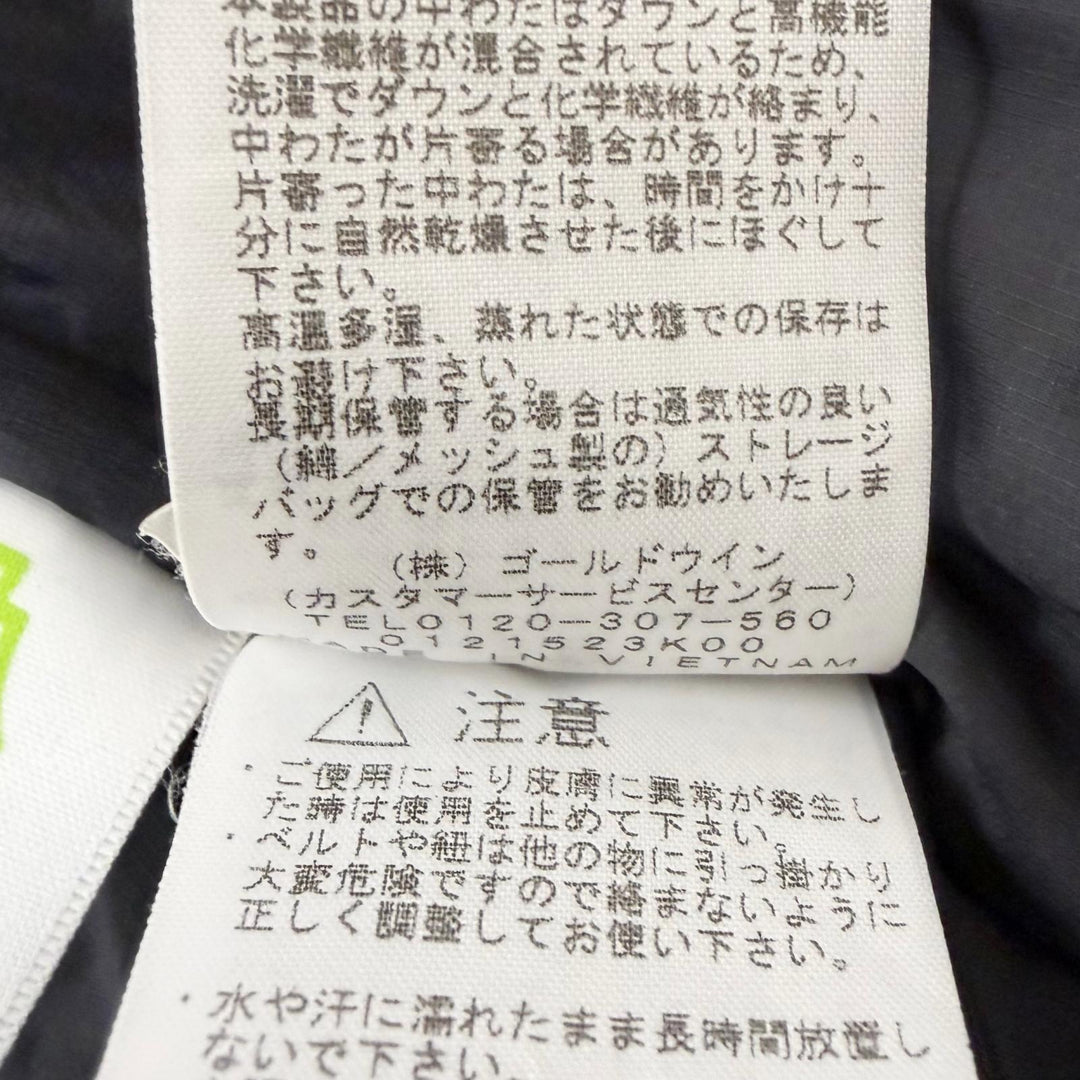 本製品の中わたはダウンと高機能
化学繊維が混合されているため、
洗濯でダウンと化学繊維が絡まり、
中わたが片寄る場合があります。
片寄った中わたは、時間をかけ十
分に自然乾燥させた後にほぐして
下さい。
高温多湿、蒸れた状態での保存は
お避け下さい。
長期保管する場合は通気性の良い
(綿/メッシュ製の)ストレージ
バッグでの保管をお勧めいたしま
す。
(株)ゴールドウイン
(カスタマーサービスセンター)
TEL0120-307-560
0121523K00
MADE IN VIETNAM
注意
・ご使用により皮膚に異常が発生し
た時は使用を止めて下さい。
・ベルトや紐は他の物に引っ掛かり
大変危険ですので絡まないように
正しく調整してお使い下さい。
・水や汗に濡れたまま長時間放置し
ないで下さい。